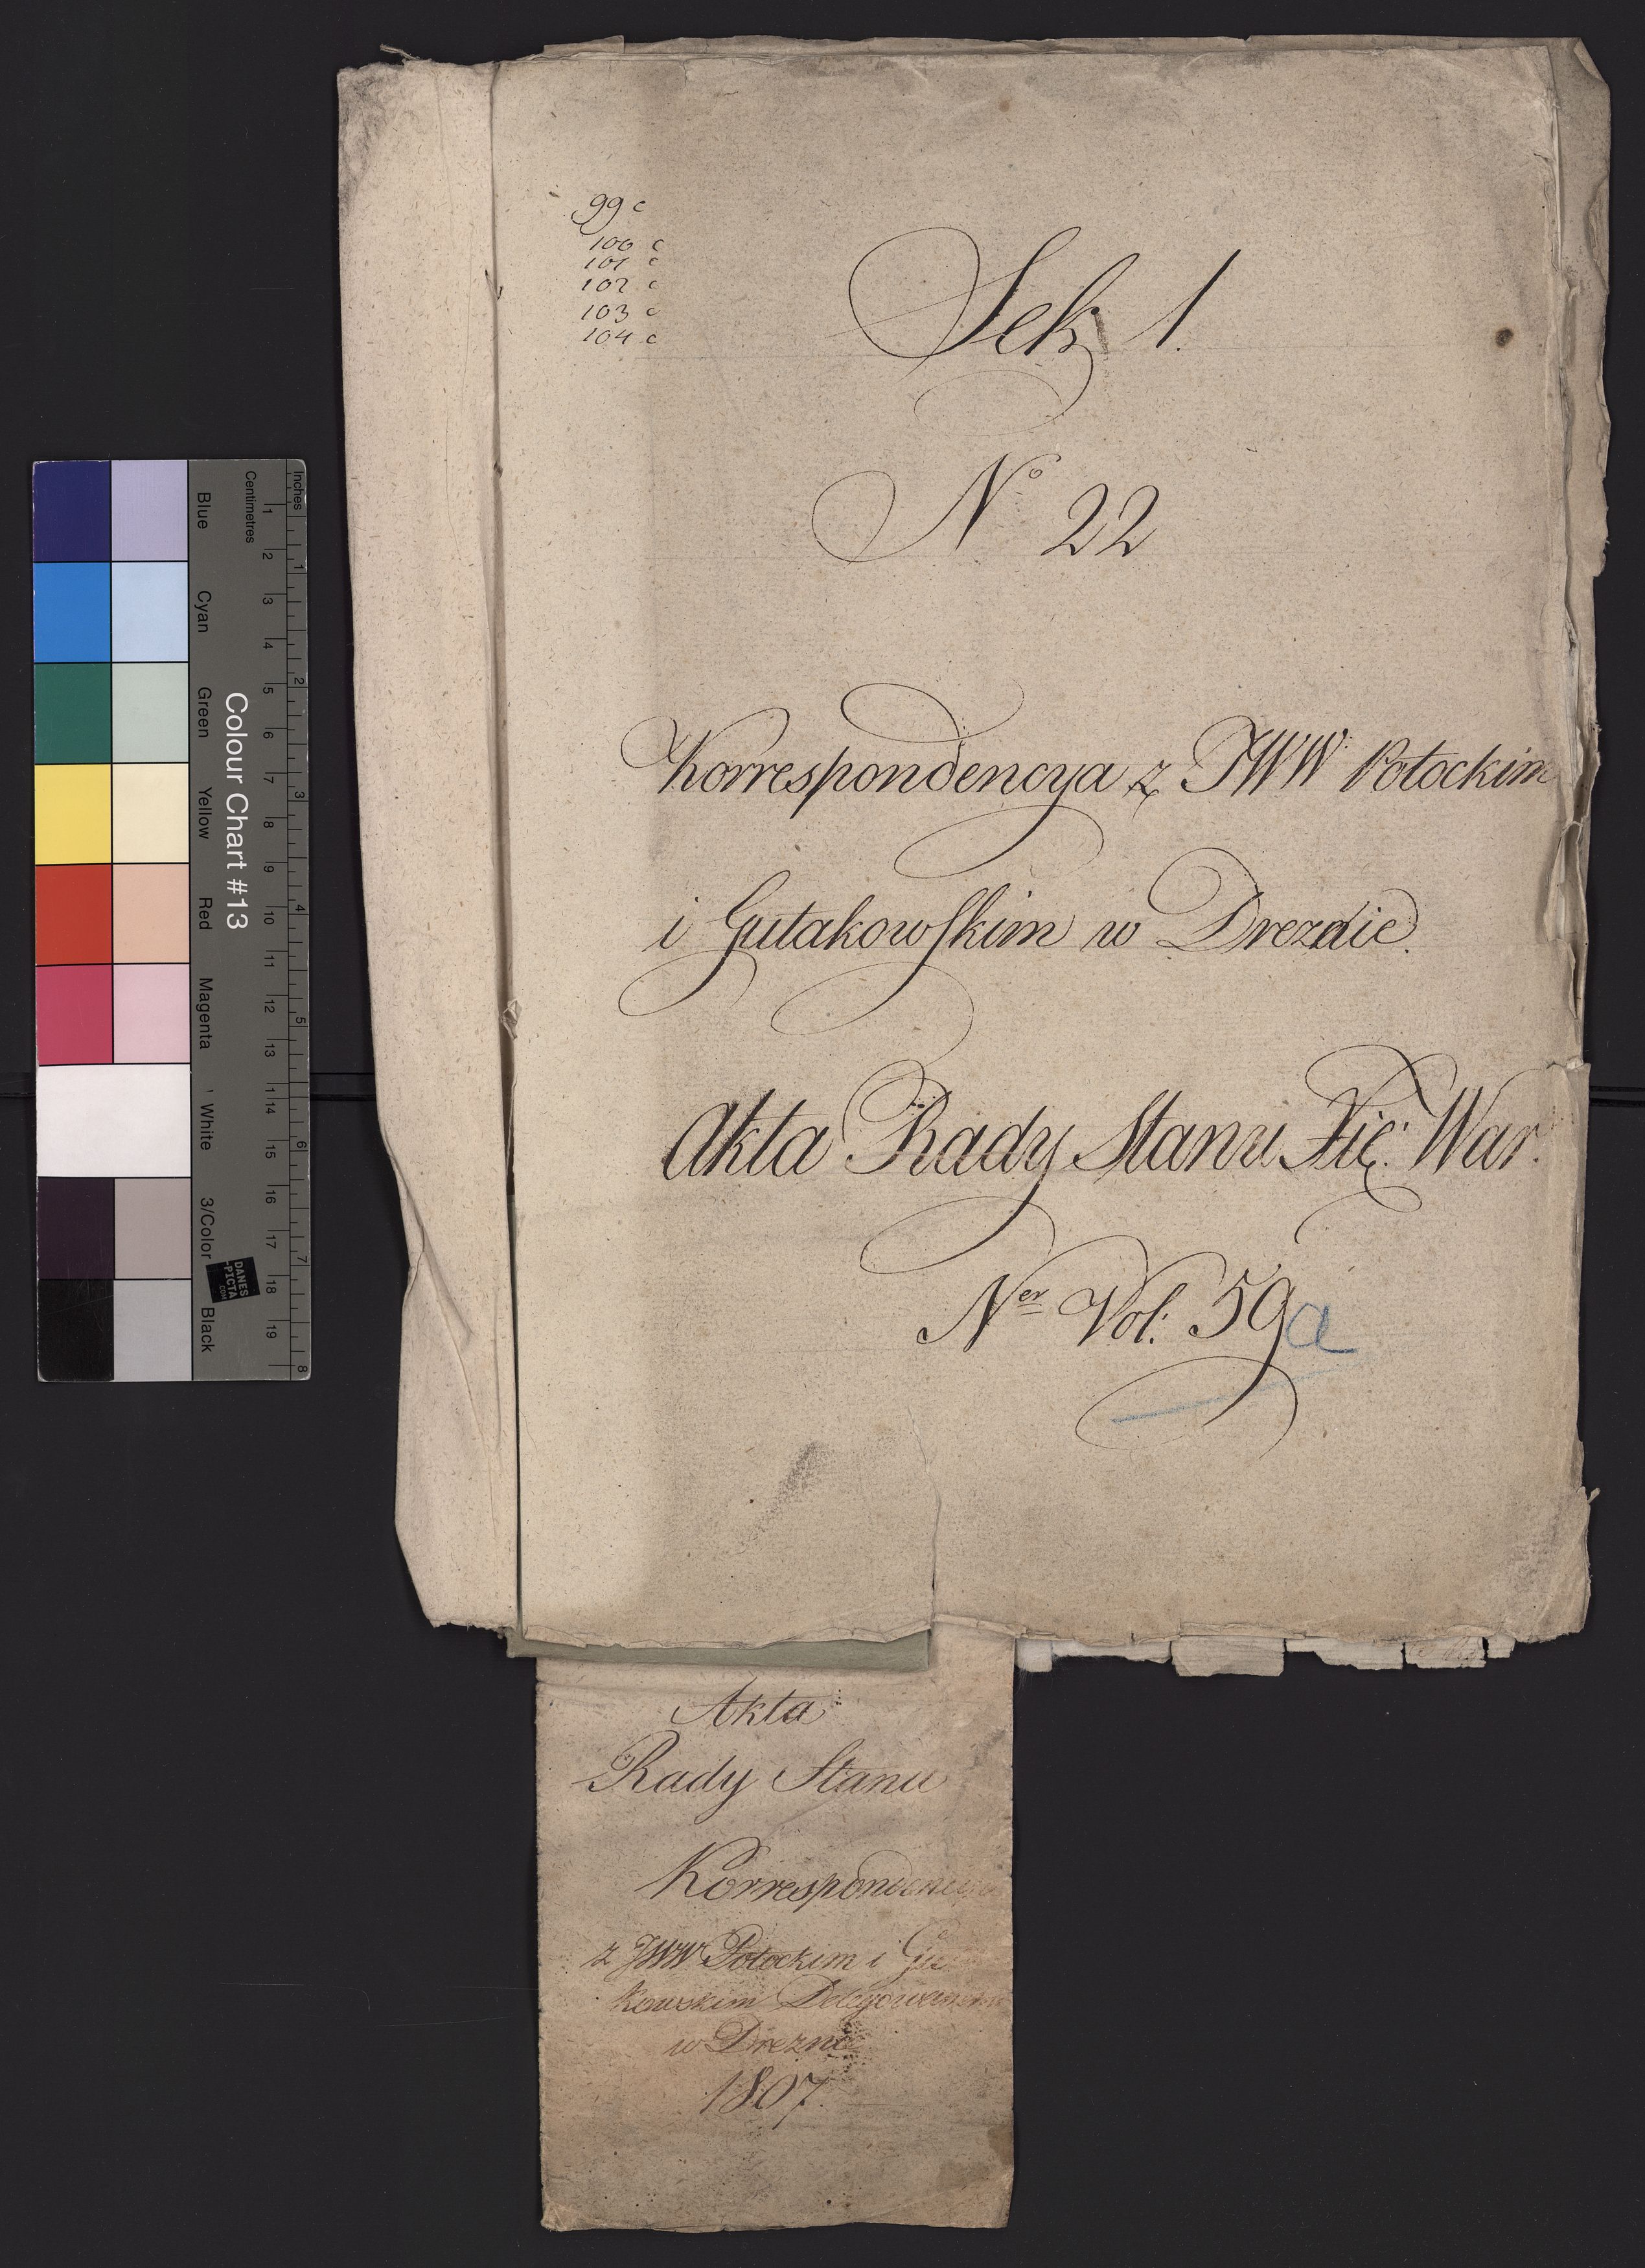 99 c
100 c
101 c
102 c
103 c
104 c
Sek. 1.
No 22
Korrespondencya z JWW Potockim
i Gutakowskim w Dreznie.
Akta Rady Stanu Xię: War:
Ner Vol: 59 a
Akta
Rady Stanu
Korrespondencya
z JWW Potockim i Guta
kowskim Delegowanemi
w Dreznie
1807.
Inches
Centimetres
1 2 3 4 5 6 7 8 9 10 11 12 13 14 15 16 17 18 19
1 2 3 4 5 6 7 8
Colour Chart #13
Blue
Cyan
Green
Yellow
Red
Magenta
White
3/Color
Black
DANES
-PICTA
.COM